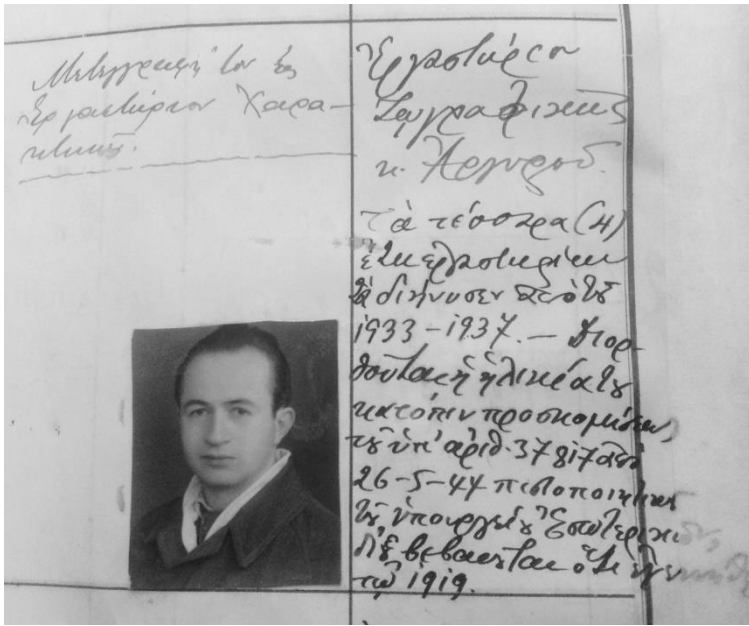 Μετεγγραφὴ τον ἐς
Ἐργαστήριον Χαρα-
κτικῆς.
Ἐργαστήριον
Ζωγραφικῆς
κ. Ἀργυροῦ.
Τὰ τέσσερα (4)
ἔτη ἐργαστηρίου
διήνυσεν ἀπὸ τοῦ
1933-1937. — Διορ-
θοῦται ἡ ἡλικία του
κατόπιν προσκομίσεως
τοῦ ὑπ' ἀριθ. 37817 ἀπὸ
26-5-44 πιστοποιητικοῦ
τοῦ ὑπουργείου Ἐσωτερικῶν,
δι' οὗ βεβαιοῦται ὅτι ἐγεννήθη
τῷ 1919.